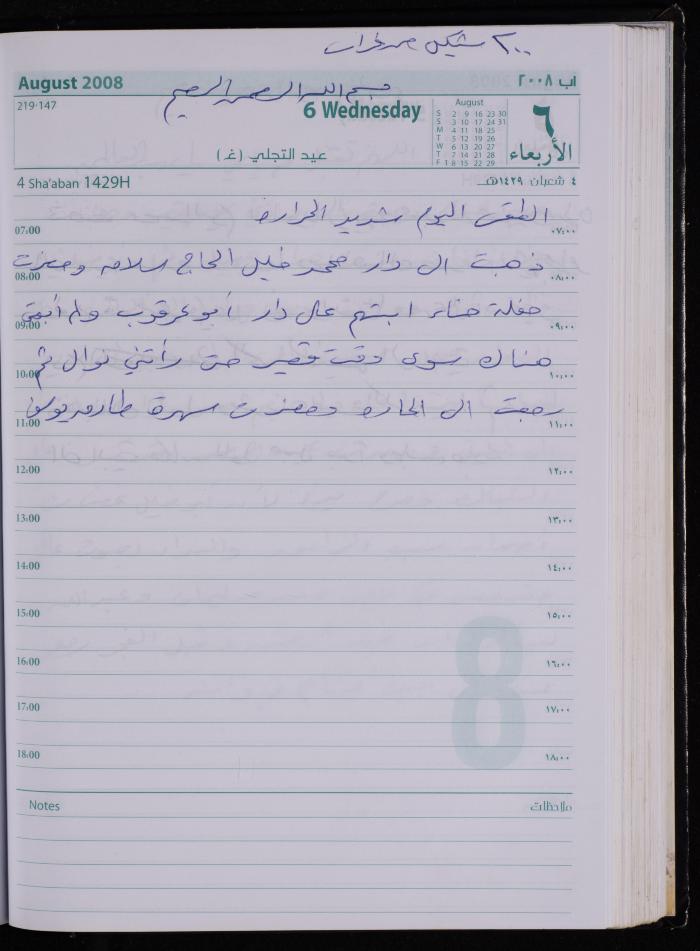 ٢٠٠ شيكل مصروفات
August 2008
آب ٢٠٠٨
بسم الله الرحمن الرحيم
219-147
6 Wednesday
August
S 2 9 16 23 30
S 3 10 17 24 31
M 4 11 18 25
T 5 12 19 26
W 6 13 20 27
T 7 14 21 28
F 1 8 15 22 29
٦
الأربعاء
عيد التجلي (غ)
4 Sha'aban 1429H
٤ شعبان ١٤٢٩هـ
الطقس اليوم شديد الحرارة
07:00 ٠٧:٠٠
ذهبت الى دار محمد خليل الحاج سلامه وحضرت
08:00 ٠٨:٠٠
حفلة حناء ابنتهم على دار أبو عرقوب ولم أبقى
09:00 ٠٩:٠٠
هناك سوى وقت قصير حتى رأتني نوال ثم
10:00 ١٠:٠٠
رجعت الى الحارة وحضرت سهرة
11:00 ١١:٠٠
12:00 ١٢:٠٠
13:00 ١٣:٠٠
14:00 ١٤:٠٠
15:00 ١٥:٠٠
16:00 ١٦:٠٠
17:00 ١٧:٠٠
18:00 ١٨:٠٠
8
Notes
ملاحظات